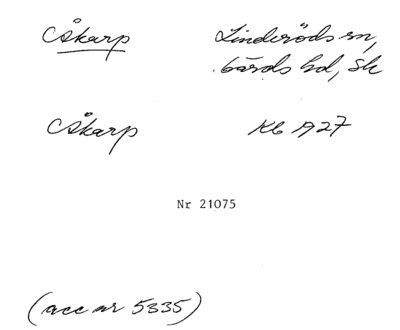 Åkarp Linderöds sn,
Gärds hd, Sk
Åkarp Kb 1927
Nr 21075
(acc nr 5335)